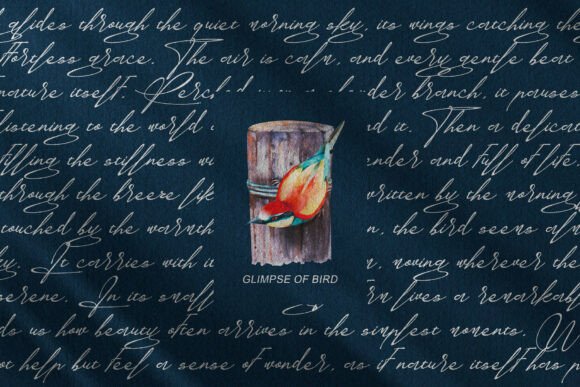 glides through the quiet morning sky, its wings catching the
ffortless grace. The air is calm, and every gentle beat
nature itself. branch, it pauses
listening to the world it. Then a delica
filling the stillness and full of life
through the breeze written by the morning
touched by the warmth the bird seems
It carries with moving wherever the
serene. In its lives a remarkabl
us how beauty often arrives in the simplest moments. W
ot help but feel a sense of wonder, as if nature itself has
GLIMPSE OF BIRD